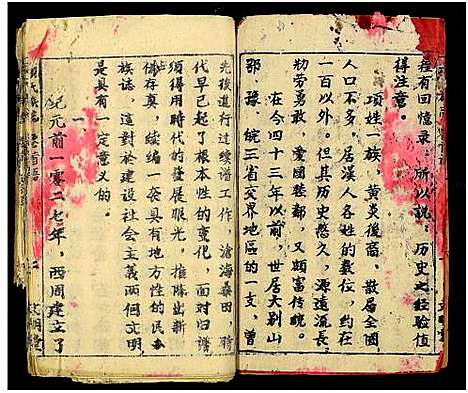 程有回憶录。所以説，历史之经驗值
得注意。
項姓一族，黄炎後裔，散居全國
各地，居漢人各姓的数位，約在
一百以外。但其历史悠久，源遠流長，
勤劳勇敢，爱國整鄰，又頗富传統。
在今四十三年以前，世居大别山
鄂、豫、皖三省交界地區的一支，曾
先後進行过续谱工作，滄海桑田，
代早已起了根本性的变化，面对旧谱
須得用時代的發展眼光，推陈出新
存真，续编一套具有地方性的民
族誌，這對於建设社会主義两個文明，
是具有一定意义的。
一
紀元前一零二七年，西周建立了